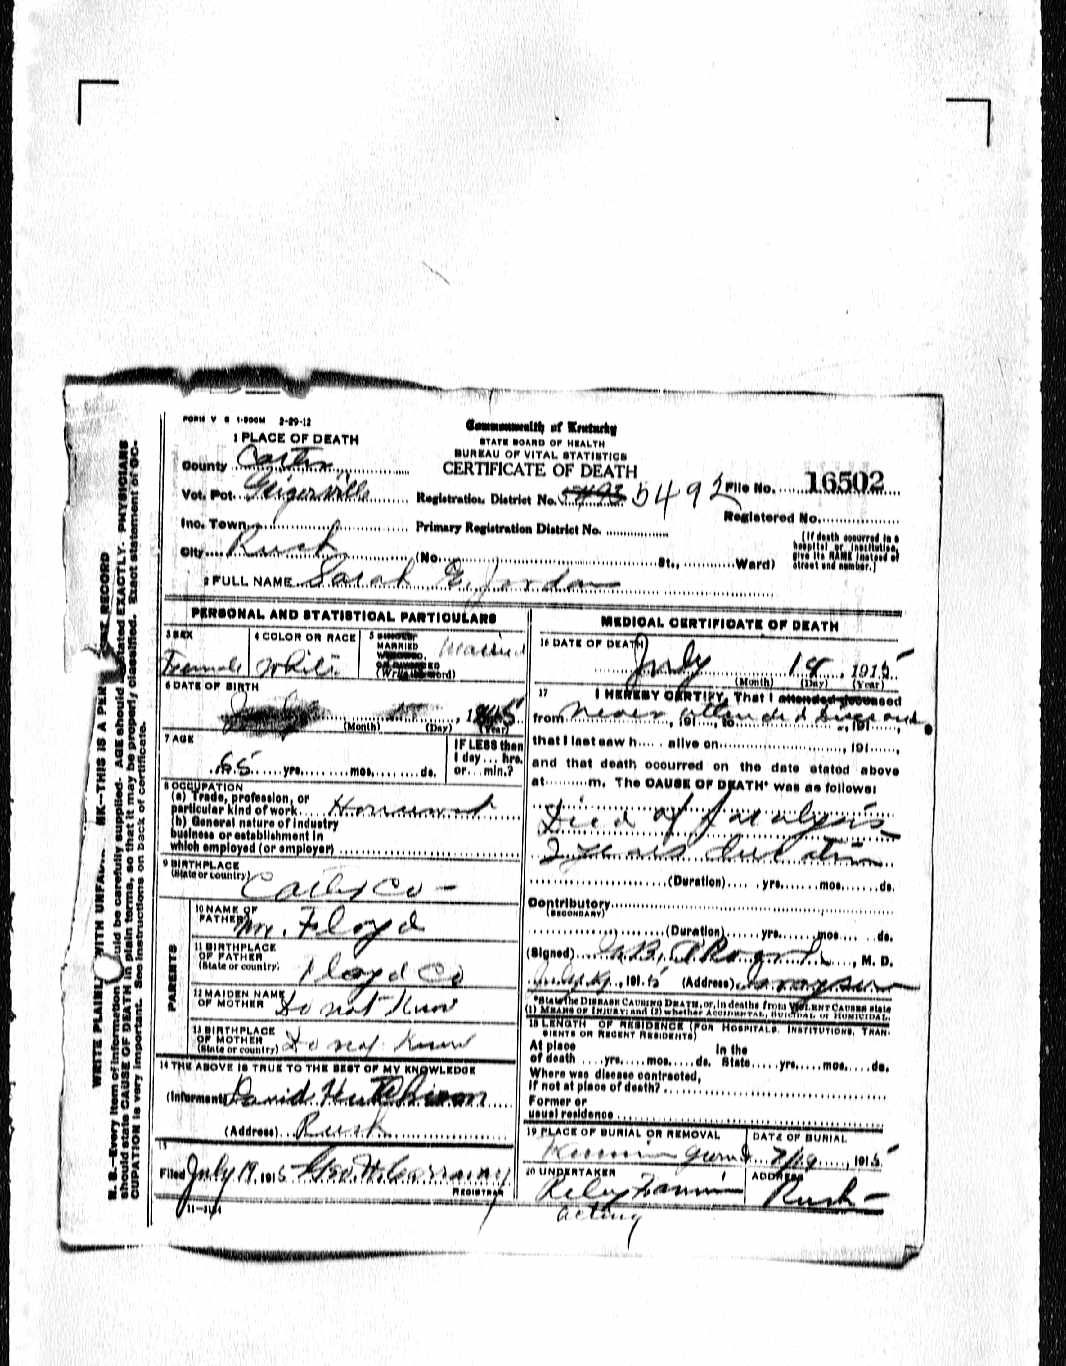 FORM V S 1-500M 2-29-12
Commonwealth of Kentucky
STATE BOARD OF HEALTH
BUREAU OF VITAL STATISTICS
CERTIFICATE OF DEATH
1 PLACE OF DEATH
County Carter
Vot. Pct. Geigerville Registration District No. 5492 File No. 16502
Inc. Town Primary Registration District No. Registered No.
City Rush (No. St., Ward)
[If death occurred in a hospital or institution, give its NAME instead of street and number.]
2 FULL NAME Sarah E. Jordan
PERSONAL AND STATISTICAL PARTICULARS
3 SEX Female
4 COLOR OR RACE White
5 SINGLE MARRIED WIDOWED OR DIVORCED (Write the word) Married
6 DATE OF BIRTH
(Month) (Day) (Year)
7 AGE
65 yrs. mos. ds.
IF LESS than 1 day ... hrs. or ... min.?
8 OCCUPATION
(a) Trade, profession, or
particular kind of work
(b) General nature of industry
business or establishment in
which employed (or employer)
9 BIRTHPLACE
(State or country)
Co -
PARENTS
10 NAME OF FATHER Wm. Floyd
11 BIRTHPLACE OF FATHER (State or country) Floyd Co
12 MAIDEN NAME OF MOTHER Do not Know
13 BIRTHPLACE OF MOTHER (State or country) Do not Know
14 THE ABOVE IS TRUE TO THE BEST OF MY KNOWLEDGE
(Informant) David Hutchison
(Address) Rush
15
Filed July 19, 1915 Geo. W.
REGISTRAR
11-3184
MEDICAL CERTIFICATE OF DEATH
16 DATE OF DEATH
July 18, 1915
(Month) (Day) (Year)
17 I HEREBY CERTIFY, That I attended deceased
from never attended deceased, 191 , to , 191 ,
that I last saw h alive on , 191 ,
and that death occurred on the date stated above
at m. The CAUSE OF DEATH* was as follows:
Died of Paralysis
2 years duration
(Duration) yrs. mos. ds.
Contributory
(SECONDARY)
(Duration) yrs. mos. ds.
(Signed) , M. D.
, 1915 (Address) Grayson
*State the DISEASE CAUSING DEATH, or, in deaths from VIOLENT CAUSES state
(1) MEANS OF INJURY; and (2) whether ACCIDENTAL, SUICIDAL or HOMICIDAL.
18 LENGTH OF RESIDENCE (FOR HOSPITALS, INSTITUTIONS, TRAN-
SIENTS OR RECENT RESIDENTS)
At place of death yrs. mos. ds. In the State yrs. mos. ds.
Where was disease contracted,
if not at place of death?
Former or
usual residence
19 PLACE OF BURIAL OR REMOVAL
DATE OF BURIAL
7/19, 1915
20 UNDERTAKER
acting
ADDRESS
Rush -
N. B.—Every item of information should be carefully supplied. AGE should be stated EXACTLY. PHYSICIANS
should state CAUSE OF DEATH in plain terms, so that it may be properly classified. Exact statement of OC-
CUPATION is very important. See instructions on back of certificate.